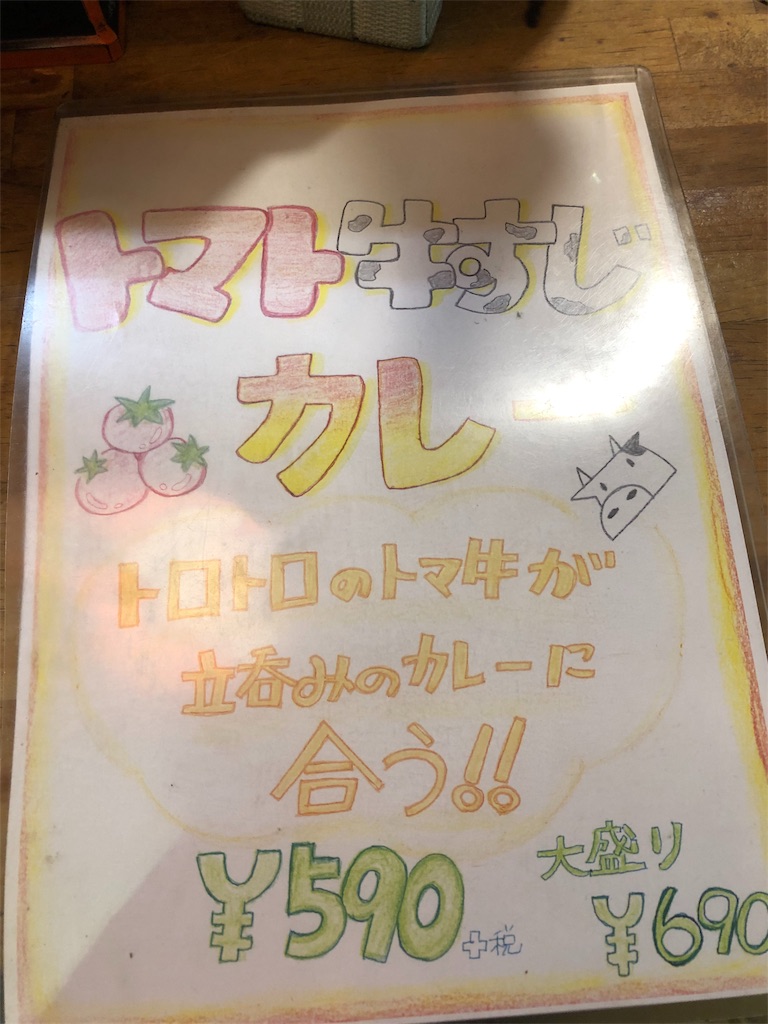 トマト牛すじ
カレー
トロトロのトマ牛が
立呑みのカレーに
合う!!
大盛り
¥590+税
¥690